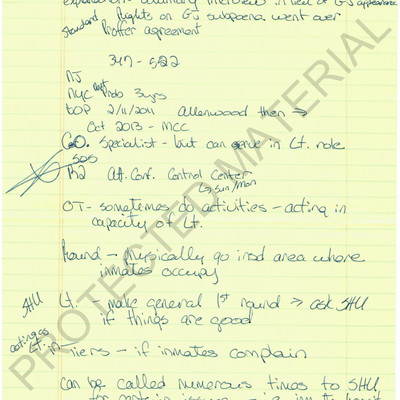 explanation - voluntary interview in lieu of GJ appearance
Standard Rights on GJ subpoena went over
Proffer agreement
347 - 522
NJ
NYC Dept Prob 3yrs
BOP 2/11/2011 Allenwood then →
Oct 2013 - MCC
C.O. Specialist - but can serve in Lt. role
SOS
Att. Conf. Control Center
Sun/Mon
OT - sometimes do activities - acting in
capacity of Lt.
Round - physically go into area where
inmates occupy
SHU Lt. - make general 1st round → ask SHU
if things are good
acting as
Lt. in - tiers - if inmates complain
can be called numerous times to SHU
for certain issues - i.e. inmate
PROTECTED MATERIAL